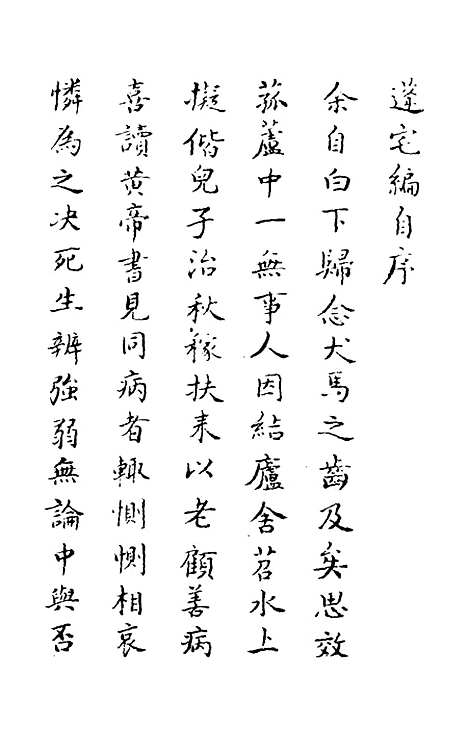 蓬宅編自序
余自白下歸念犬馬之齒及矣思效
菰蘆中一無事人因結廬舍苕水上
擬偕兒子治秋稼扶耒以老顧善病
喜讀黄帝書見同病者輒惻惻相哀
憐為之决死生辨強弱無論中與否